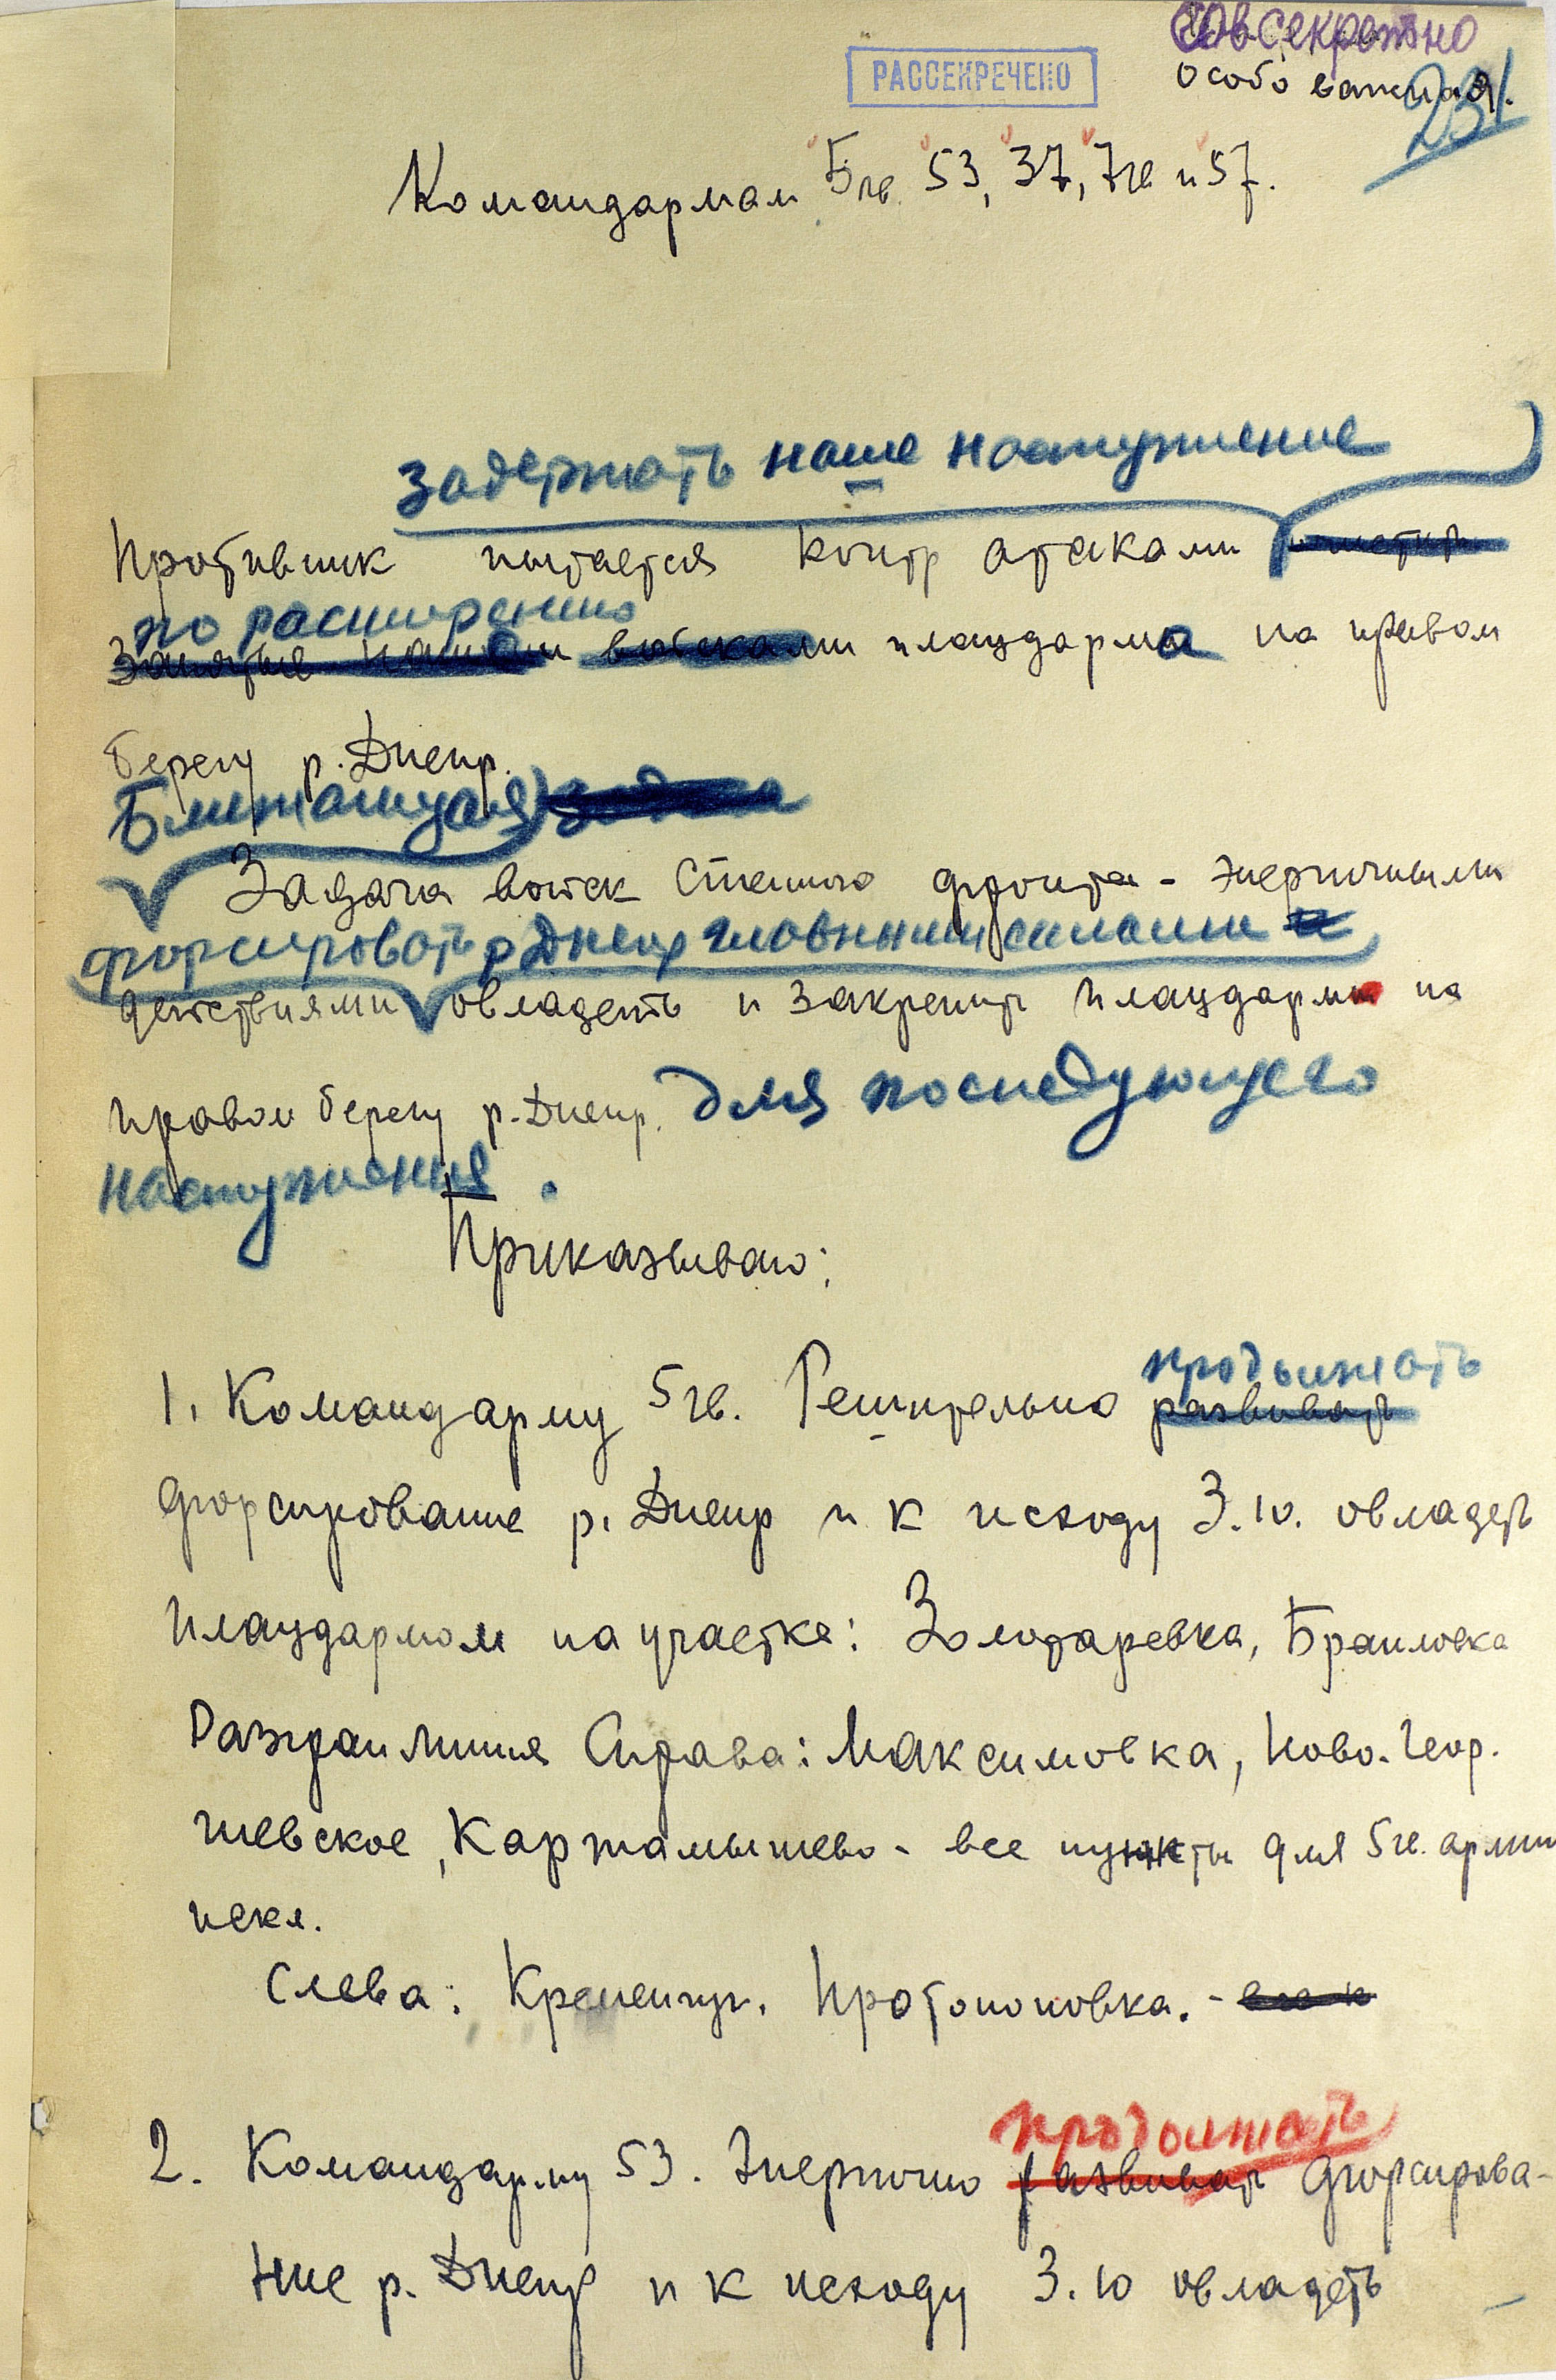 Совсекретно
РАССЕКРЕЧЕНО
Особо важная.
231
Командармам 5 гв. 53, 37, 7 гв и 57.
задержать наше наступление
Противник пытается контр атаками
по расширению
Занятые нашими войсками плацдарма на правом
берегу р. Днепр.
Ближайшая задача
Задача войск Степного фронта - энергичными
форсировать р Днепр главными силами и
действиями овладеть и закрепить плацдарм на
правом берегу р. Днепр. для последующего
наступления.
Приказываю:
продолжать
1. Командарму 5 гв. Решительно развивать
форсирование р. Днепр и к исходу 3.10. овладеть
плацдармом на участке: Золотаревка, Браиловка
Разгранлиния Справа: Максимовка, Ново-Геор-
гиевское, Картамышево - все пункты для 5 гв. армии
искл.
Слева: Кременчуг. Протопоповка. -
продолжать
2. Командарму 53. Энергично развивать форсирова-
ние р. Днепр и к исходу 3.10 овладеть